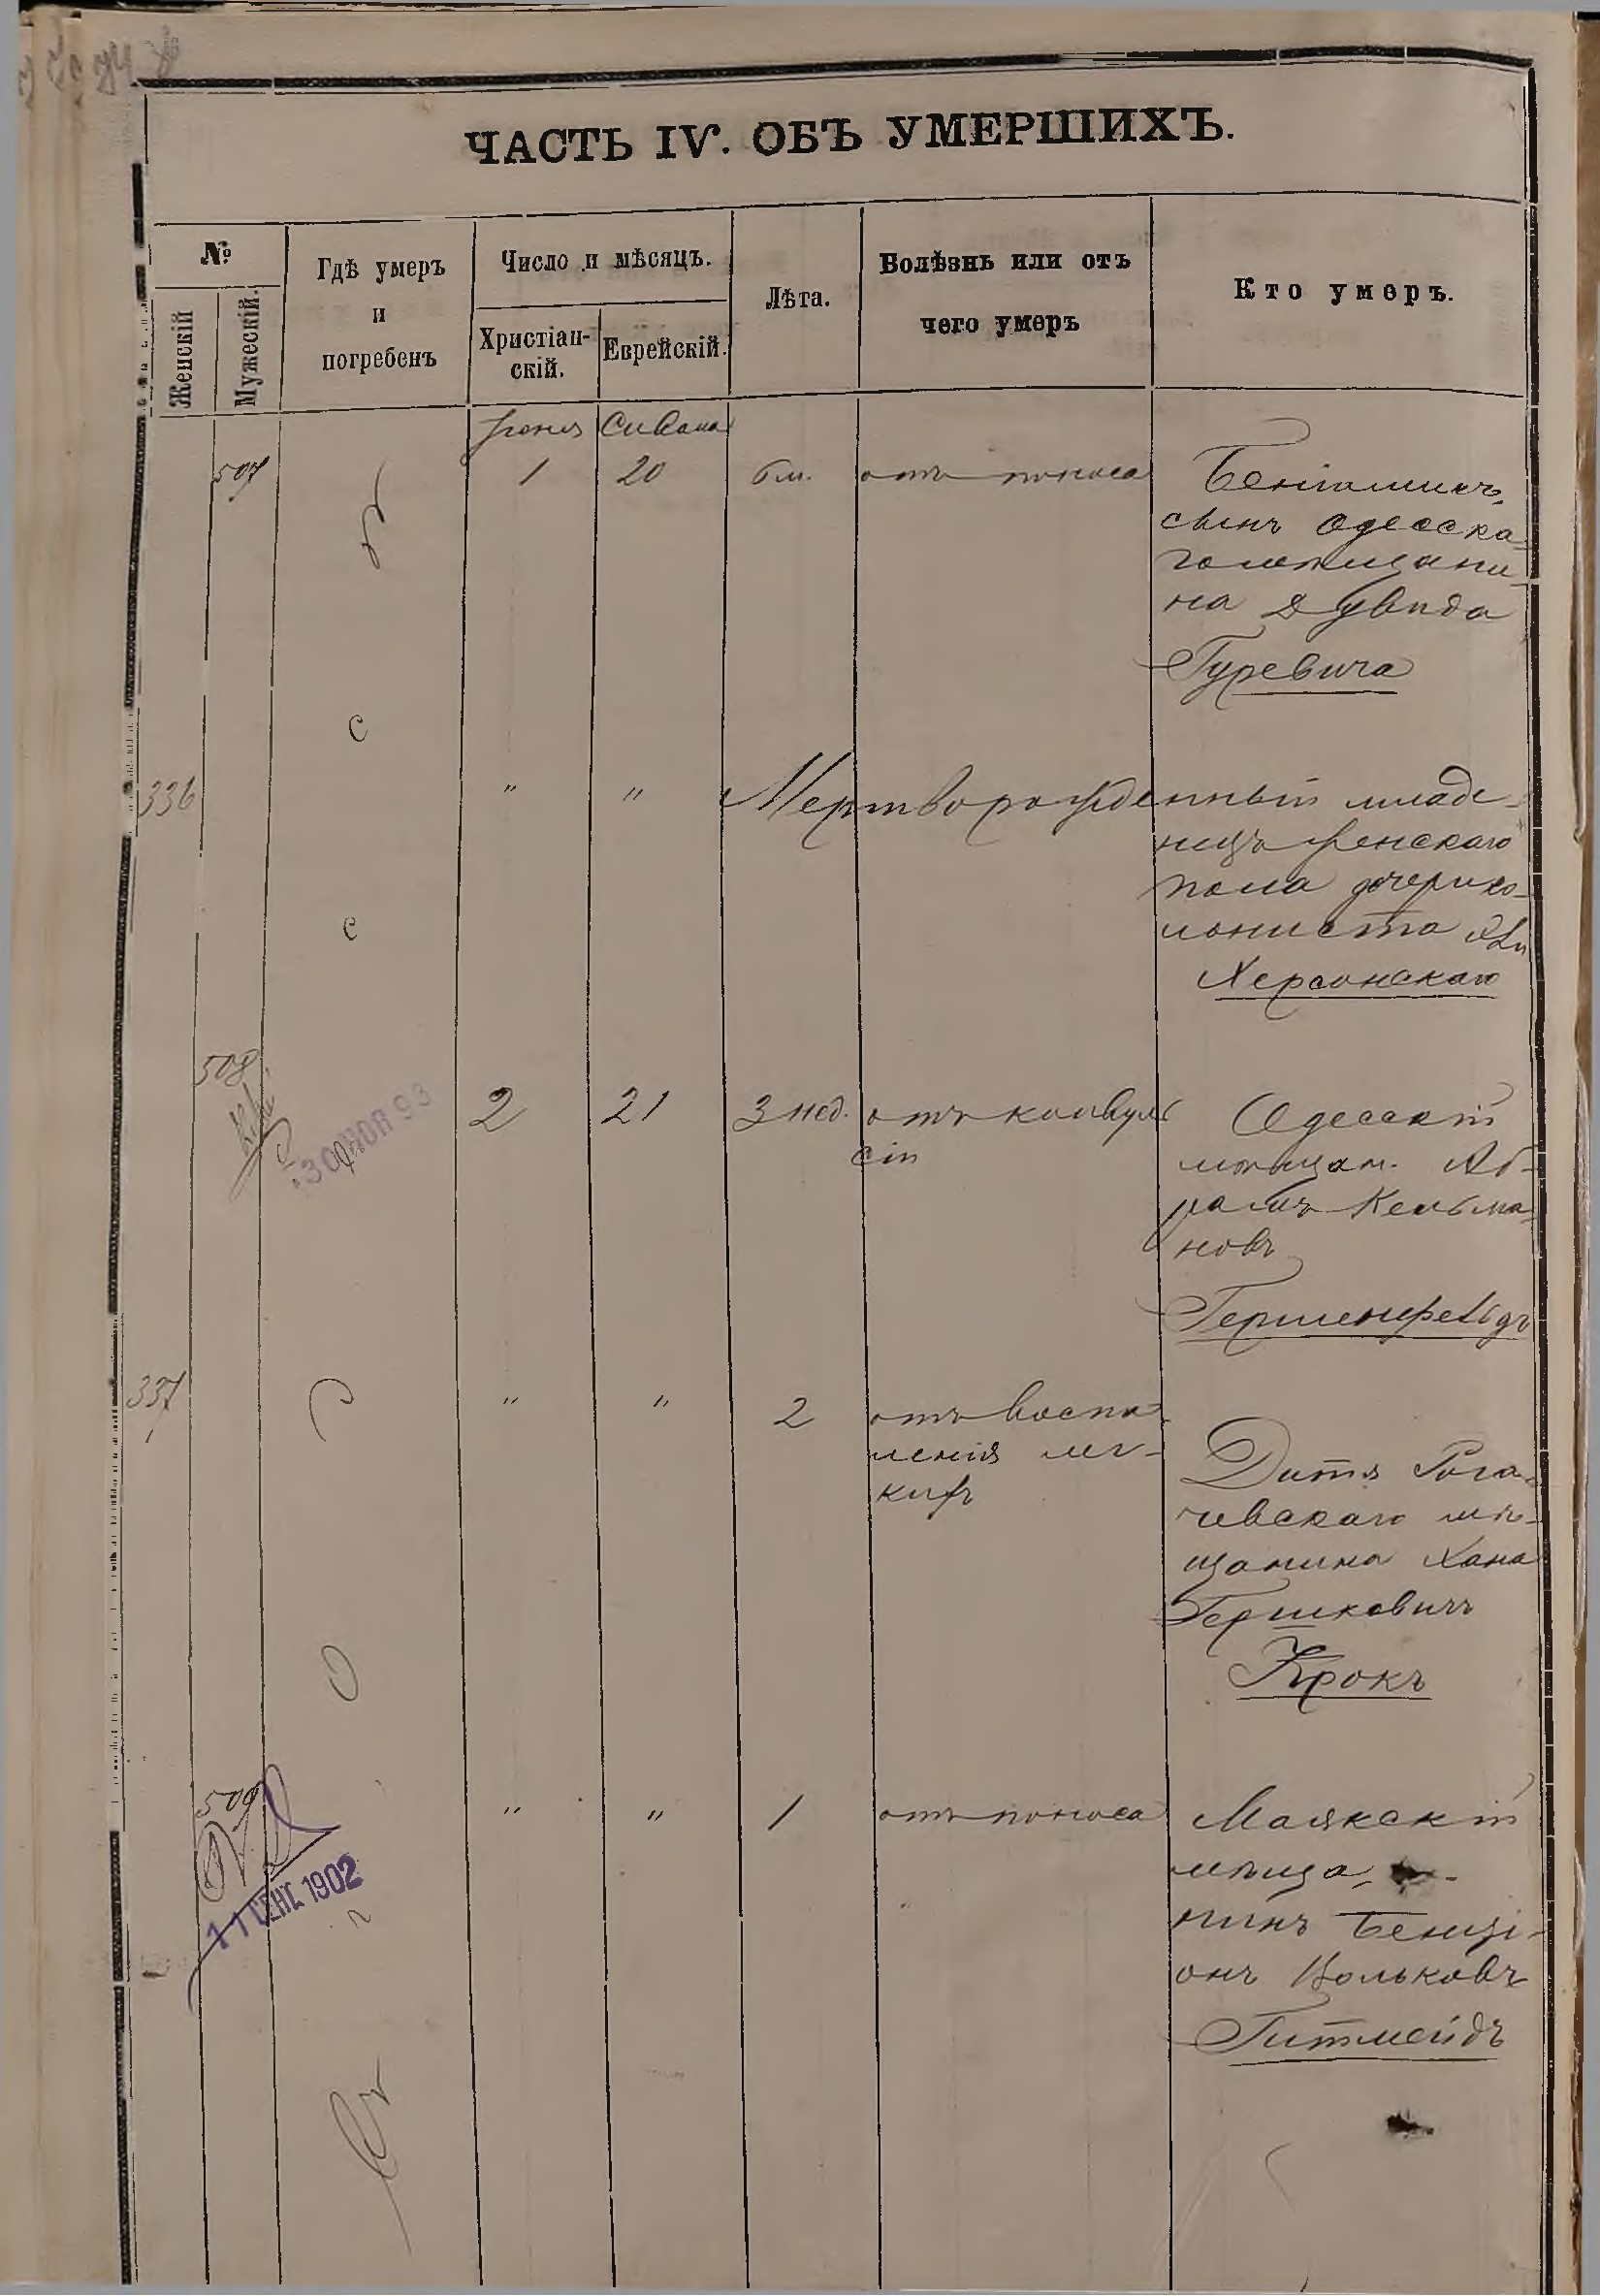 ЧАСТЬ IV. ОБЪ УМЕРШИХЪ.
№
Женскій
Мужескій.
Гдѣ умеръ
и
погребенъ
Число и мѣсяцъ.
Христіан-
скій.
Еврейскій.
Лѣта.
Болѣзнь или отъ
чего умеръ
Кто умеръ.
Іюня Сивана
507 1 20 6 м. отъ поноса Беніоминъ,
сынъ Одесска-
го мѣщани-
на Дувида
Гуревича
с
336 " " Мертворожденный младе-
нецъ женскаго
пола дочери ко-
лониста
с
Херсонскаго
508
30 НОЯ 93
2 21 3 нед. отъ конвуль
сіи
Одесскій
мѣщан. Аб-
рамъ Кельма-
новъ
Герценфельдъ
337 " " 2 отъ воспа-
ленія лег-
кихъ
Дитя Рога-
чевскаго мѣ-
щанина Хана
Гершковичъ
Крокъ
509 " " 1 отъ поноса Маякскій
мѣща-
нинъ Бенці-
онъ Вольковъ
Гитмейдъ
11 СЕНТ. 1902